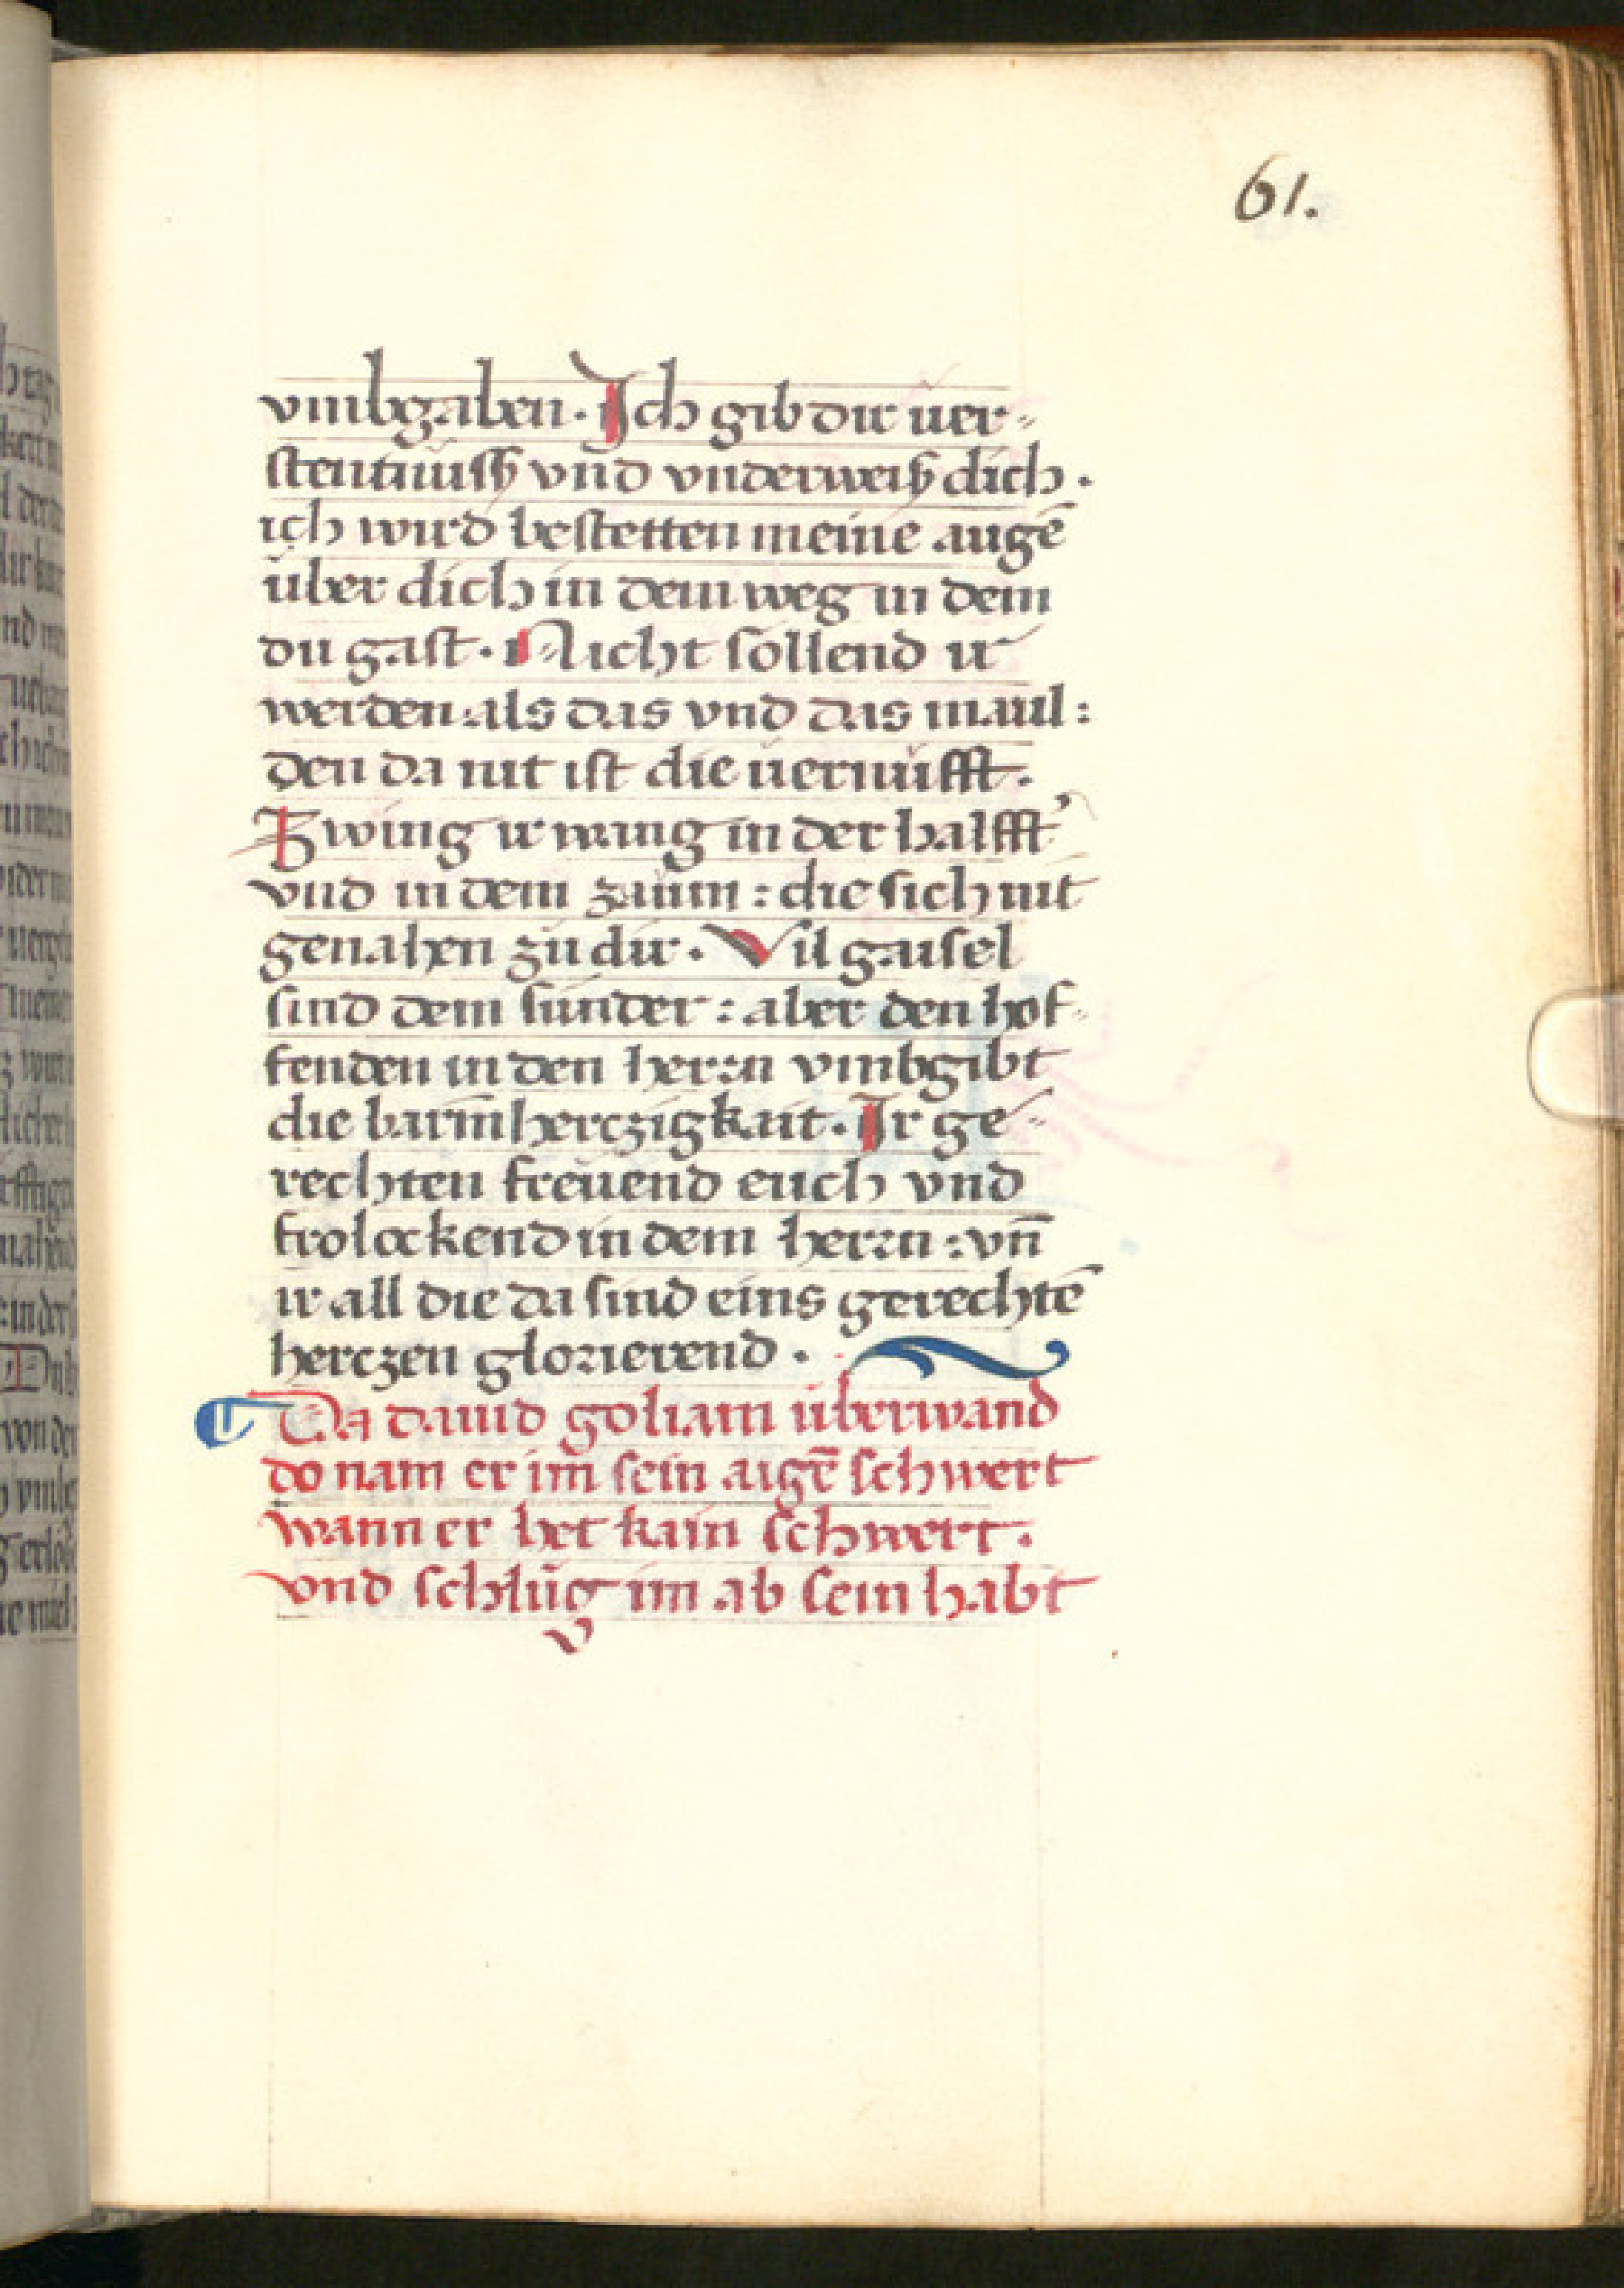 61.
vmbgaben. Ich gib dir uer-
stentnuß vnd vnderweiß dich.
ich wird bestetten meine augē
über dich in dem weg in dem
du gast. Nicht söllend ir
werden als das vnd das maul:
den da nit ist die uernufft.
Zwing ir wang in der halfft'
vnd in dem zaum: die sich nit
genahen zu dir. Vil gaisel
sind dem sünder: aber den hof-
fenden in den herrn vmbgibt
die barm̄herczigkait. Ir ge-
rechten freuend euch vnd
frolockend in dem herrn: vn̄
ir all die da sind eins gerechtē
herczen glorierend.
Da dauid goliam überwand
do nam er im̄ sein aigē schwert
wann er het kain schwert.
vnd schlug im ab sein habt